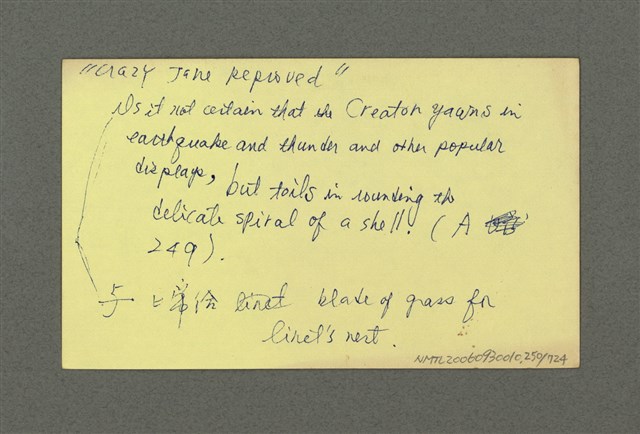 "Crazy Jane Reproved"
Is it not certain that the Creator yawns in
earthquake and thunder and other popular
displays, but toils in rounding the
delicate spiral of a shell! (A
249).
与 上帝給 linet blade of grass for
linet's nest.
NMTL20060930010.250/724